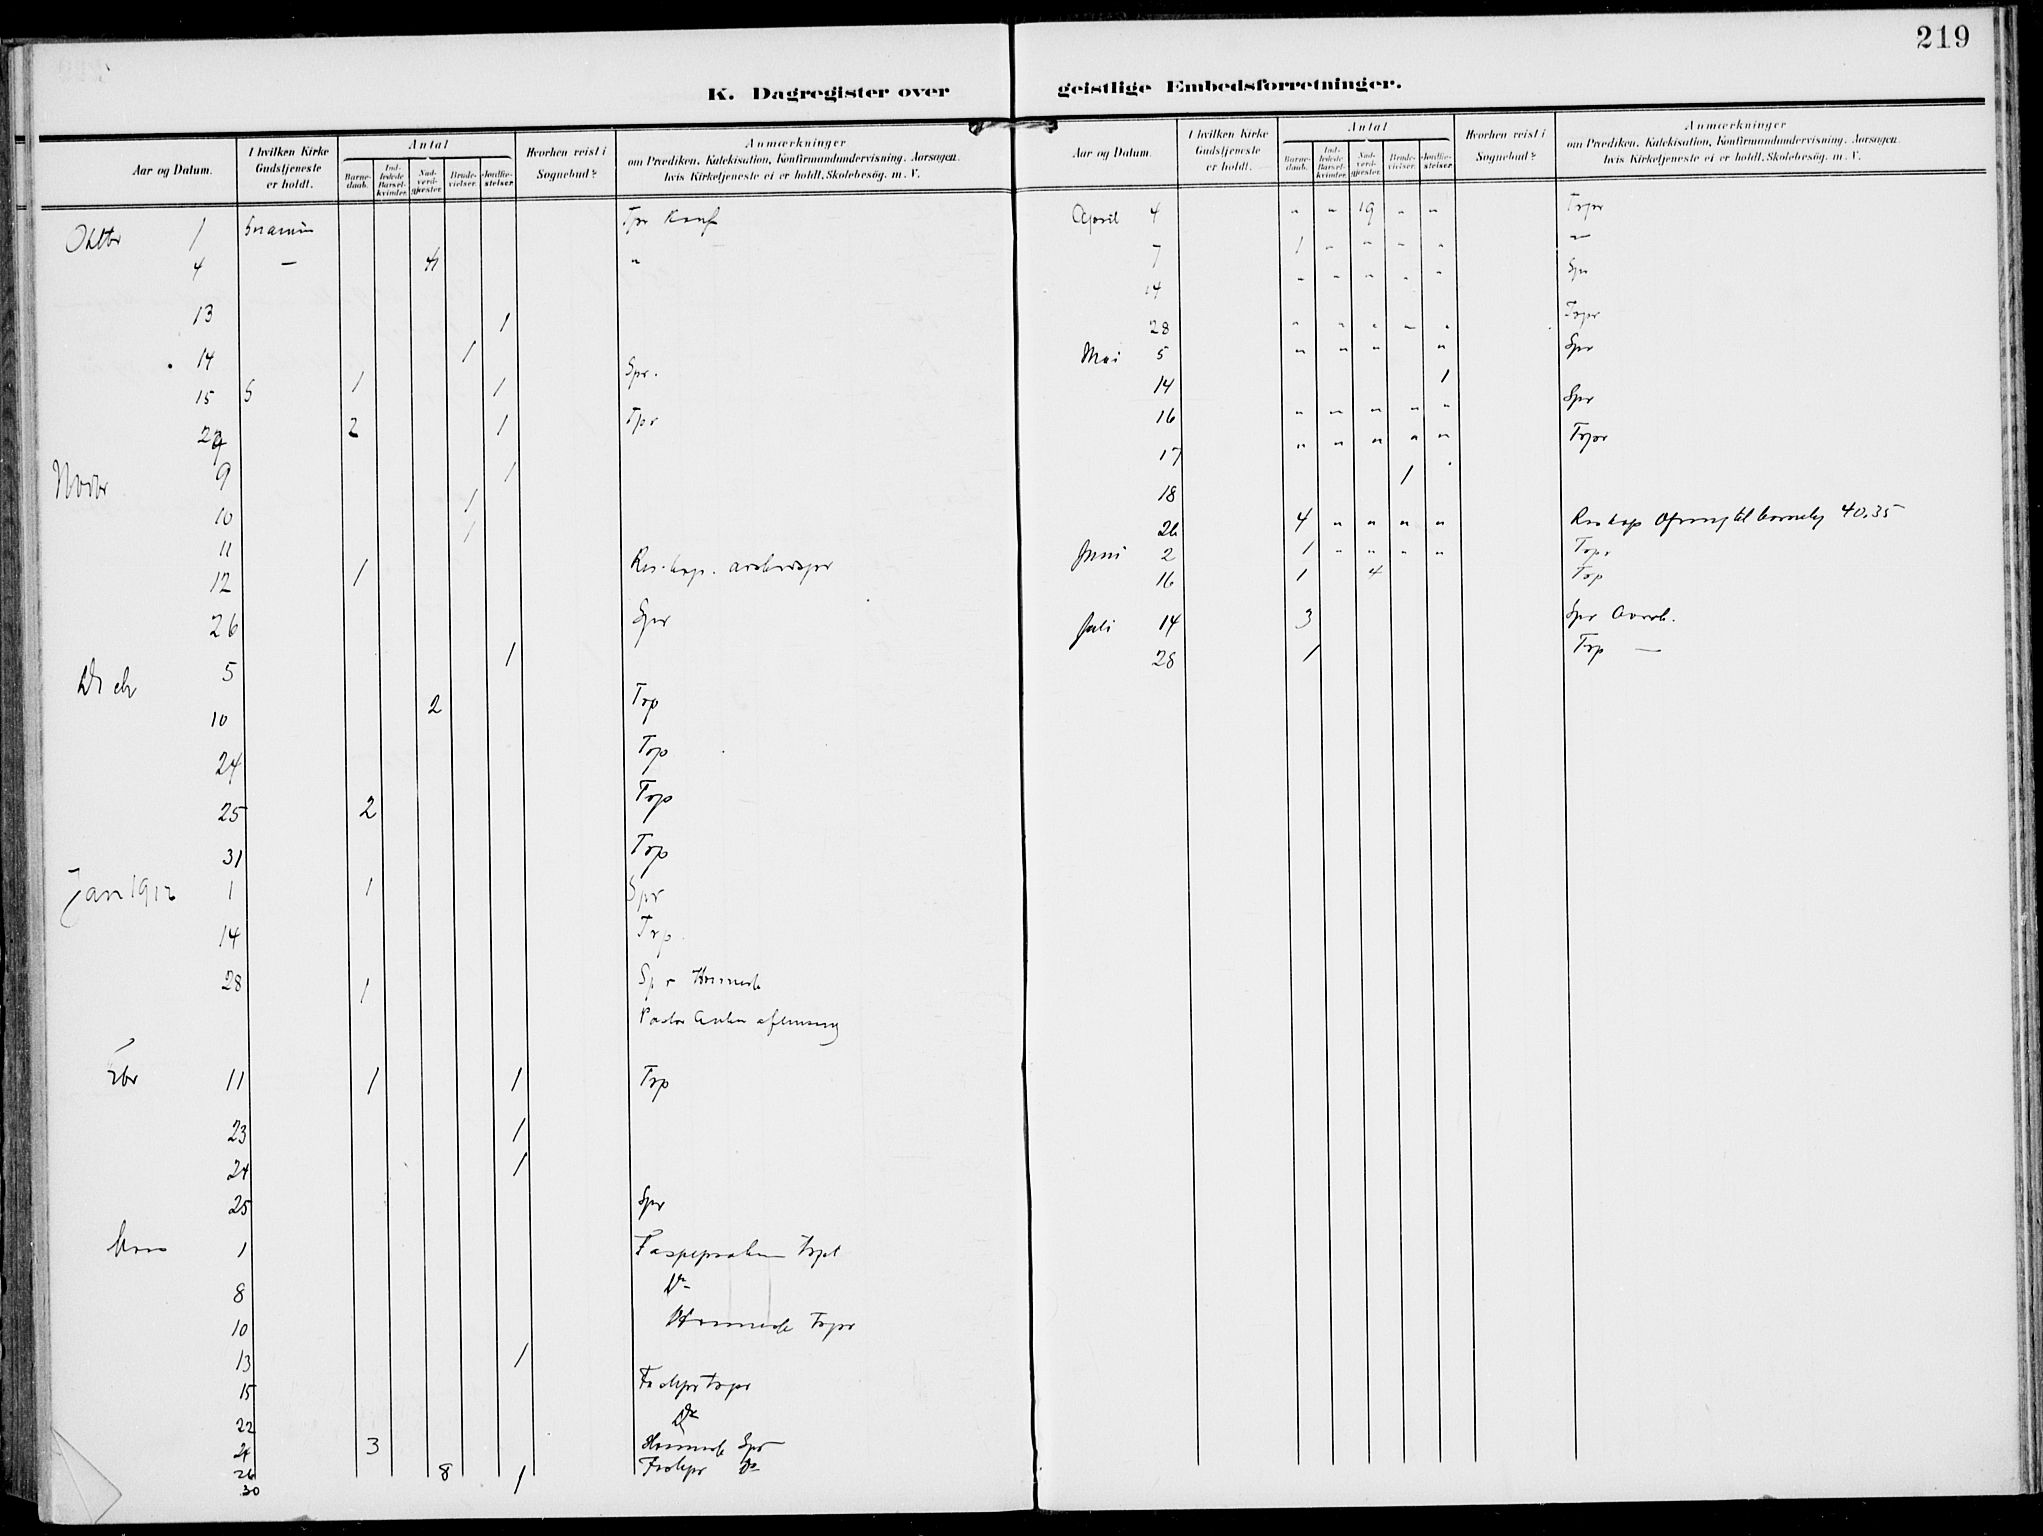 219
K. Dagregister over geistlige Embedsforretninger.
Aar og Datum. I hvilken Kirke Gudstjeneste er holdt. Antal Barne-daab. Ind-ledede Barsel-kvinder. Nad-verd-gjester. Brude-vielser. Jordfæ-stelser. Hvorhen reist i Sognebud? Anmærkninger om Prædiken, Katekisation, Konfirmandundervisning, Aarsagen, hvis Kirketjeneste ei er holdt, Skolebesög. m. V.
Oktbr 1 Tpr Konf
4 — 4 "
13 1
14 1
15 S 1 1 Spr.
29 2 1 Tpr
Novbr 9 1
10 1
11 1
12 1 Res. kap.
26 Spr
Decbr 5 1
10 2 Trp
24 Trp
25 2 Trp
31 Trp
Jan 1912 1 1 Spr
14 Trp
28 1 Spr
Pastor
Fbr 11 1 1 Trp
23 1
24 1
25 Spr
1 Trpr
8 Do
10 Trpr
13 1
15 Trpr
22 Do
24 3 Spr
26 8 Do
30 1
Aar og Datum. I hvilken Kirke Gudstjeneste er holdt. Antal Barne-daab. Ind-ledede Barsel-kvinder. Nad-verd-gjester. Brude-vielser. Jordfæ-stelser. Hvorhen reist i Sognebud? Anmærkninger om Prædiken, Katekisation, Konfirmandundervisning, Aarsagen, hvis Kirketjeneste ei er holdt, Skolebesög. m. V.
April 4 " " 19 " " Trpr
7 1 " " " " —
14 " " " " " Spr
28 " " " " " Trpr
Mai 5 " " " " Spr
14 1
16 " " " " " Spr
17 " " " " " Trpr
18 1
26 4 " " " " Res kap Ofring til 40.35
Juni 2 1 " " " " Trpr
16 1 4 Trp
Juli 14 3 Spr
28 1 Trp —